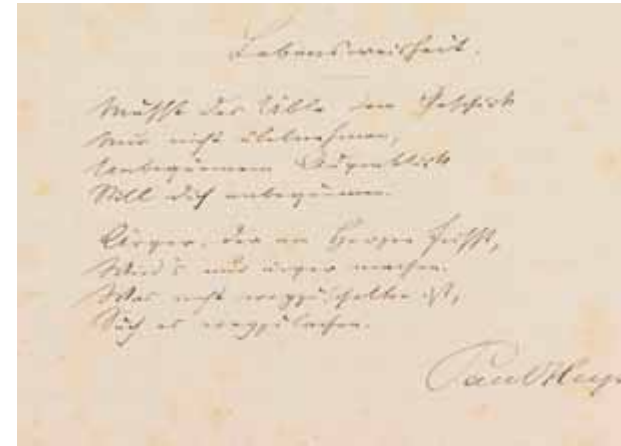 Lebensweisheit.
Mußt das Üble dem Geschick
Nur nicht übelnehmen,
Unbequemem Augenblick
Still dich anbequemen.
Ärger, der am Herzen frißt,
Wird's nur ärger machen.
Was nicht wegzuschelten ist,
Such es wegzulachen.
Paul Heyse